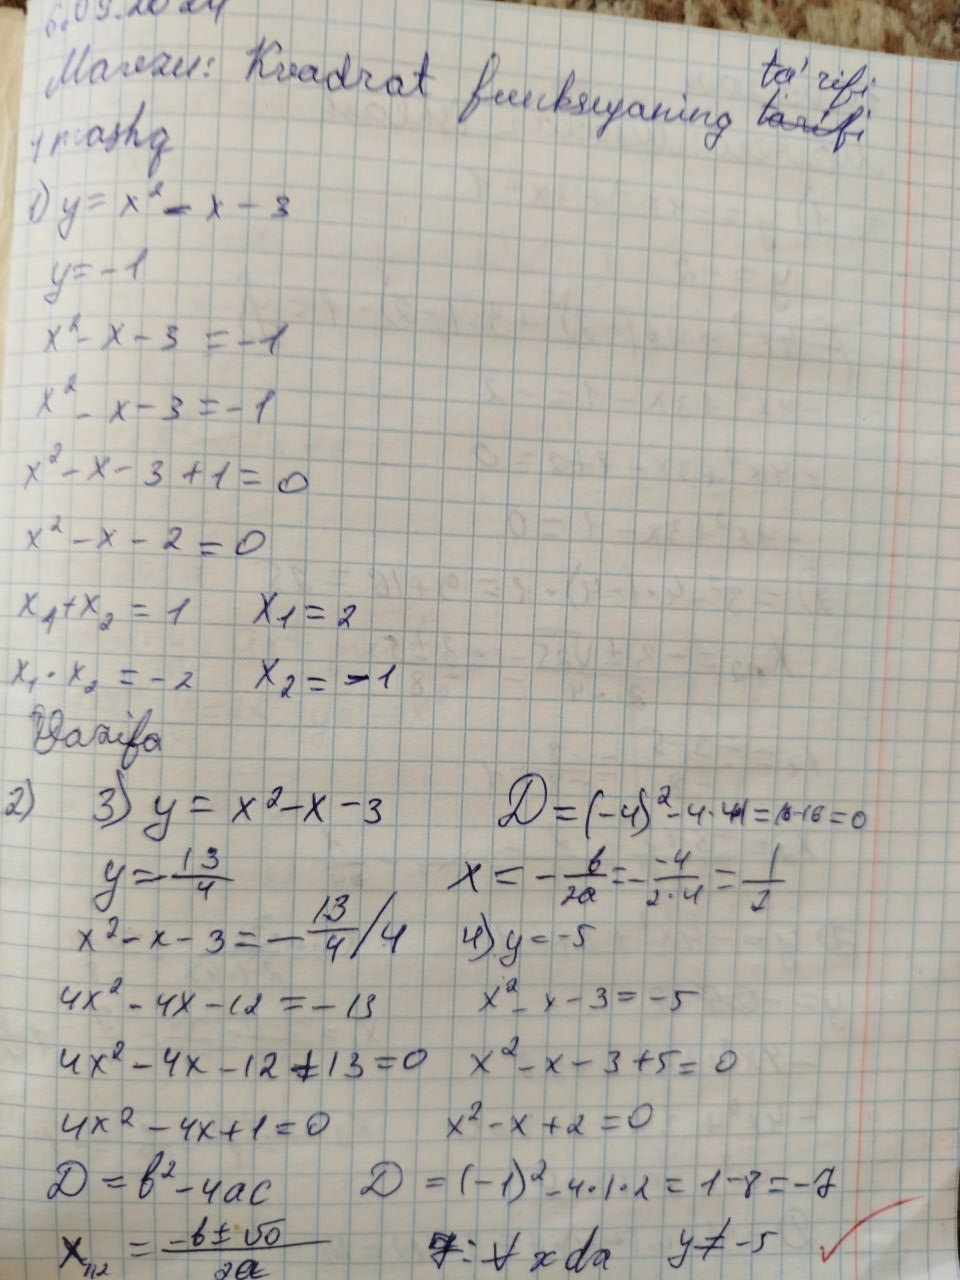 6.09.2024
Mavzu: Kvadrat funksiyaning ta'rifi
1 mashq
1) y = x² - x - 3
y = -1
x² - x - 3 = -1
x² - x - 3 = -1
x² - x - 3 + 1 = 0
x² - x - 2 = 0
x₁ + x₂ = 1 x₁ = 2
x₁ · x₂ = -2 x₂ = -1
Vazifa
2) 3) y = x² - x - 3
y = -13/4
x² - x - 3 = -13/4 /4
4x² - 4x - 12 = -13
4x² - 4x - 12 + 13 = 0
4x² - 4x + 1 = 0
D = b² - 4ac
x₁,₂ = (-b ± √D)/2a
D = (-4)² - 4·4·1 = 16-16 = 0
x = -b/2a = - -4/2·4 = 1/2
4) y = -5
x² - x - 3 = -5
x² - x - 3 + 5 = 0
x² - x + 2 = 0
D = (-1)² - 4·1·2 = 1-8 = -7
∀ x da y ≠ -5